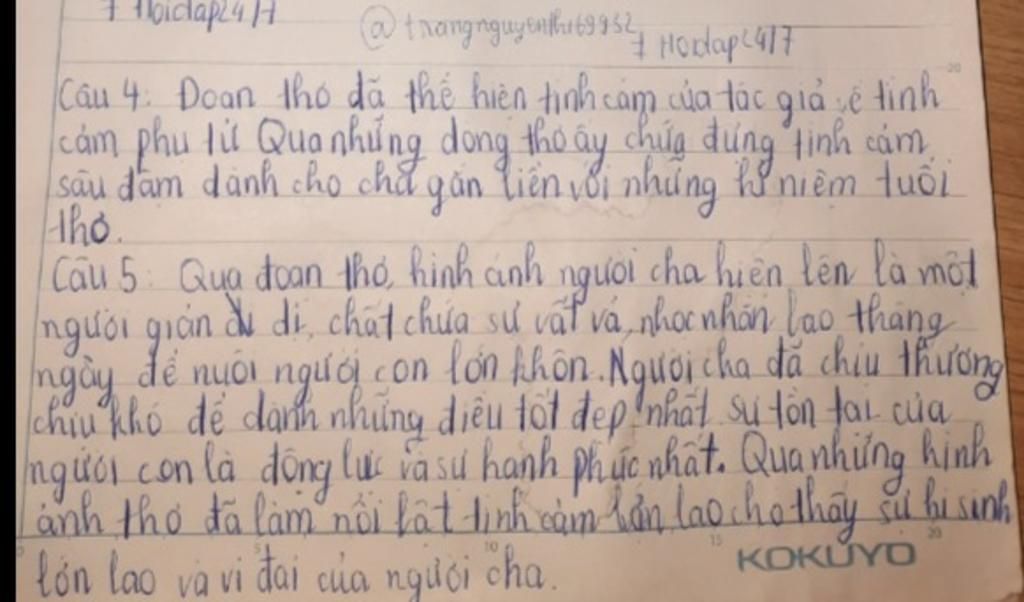 7 Hoidap247
@trangnguyenthi69932
7 Hoidap247
Câu 4: Đoạn thơ đã thể hiện tình cảm của tác giả về tình
cảm phụ tử Qua những dòng thơ ấy chứa đựng tình cảm
sâu đậm dành cho cha gắn liền với những kỉ niệm tuổi
thơ.
Câu 5: Qua đoạn thơ, hình ảnh người cha hiện lên là một
người giản dị, chất chứa sự vất vả, nhọc nhằn lao tháng
ngày để nuôi người con lớn khôn. Người cha đã chịu thương
chịu khó để dành những điều tốt đẹp nhất sự tồn tại của
người con là động lực và sự hạnh phúc nhất. Qua những hình
ảnh thơ đã làm nổi bật tình cảm lớn lao cho thấy sự hi sinh
lớn lao và vĩ đại của người cha.
KOKUYO